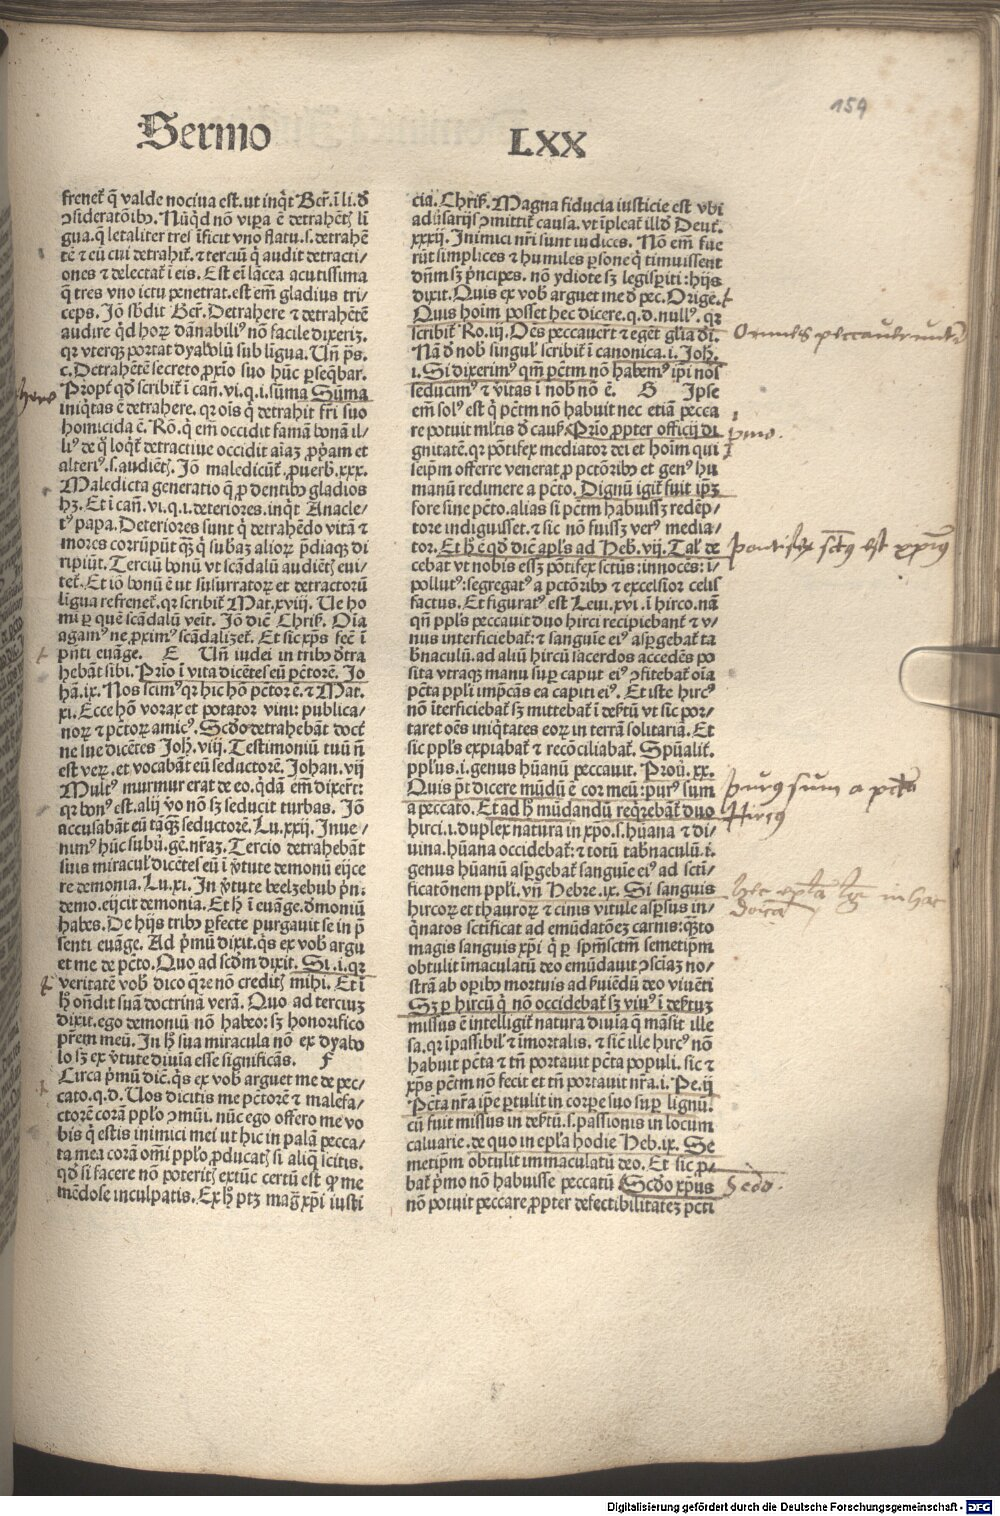 159
Sermo LXX
frenet᷑ q̃ valde nociua est. ut inqͥt Ber̃. i li. ð
ↄsideratõib⁹. Nũqͥd nõ vip̱a ẽ detrahẽt̃ lĩ
gua. q̃ letaliter tres ĩficit vno flatu. s. detrahẽ
tẽ ⁊ eũ cui detrahit᷑. ⁊ terciũ qͥ audit detracti⸗
ones ⁊ delectat᷑ ĩ eis. Est eñ lãcea acutissima
q̃ tres vno ictu penetrat. est em̃ gladius tri⸗
ceps. Jõ sb̃dit Ber̃. Detrahere ⁊ detrahẽtẽ
audire qͥd horꝝ dãnabili⁹ nõ facile dixerĩ.
qꝛ vterqꝫ portat dyabolũ sub lĩgua. Uñ p̃s.
c. Detrahẽtẽ secreto ꝓxĩo suo hũc ꝑseq̃bar.
Propt᷑ qd̃ scribit᷑ ĩ can̄. vi. q. i. sũma Sũma
iniqͥtas ẽ detrahere. qꝛ oĩs qͥ detrahit fr̃i suo
homicida ẽ. Rõ. qͥ em̃ occidit famã bonã il⸗
li⁹ de qͦ loqͥt᷑ detractiue occidit aĩaꝫ ꝓpͥam et
alteri⁹. s. audiẽt̃. Jõ maledicũt᷑. ꝓuerb̃. xxx.
Maledicta generatio q̃ ꝓ dentib⁹ gladios
hꝫ. Et ĩ can̄. vi. q. i. deteriores. inqͥt Anacle⸗
t⁹ papa. Deteriores sunt qͥ detrahẽdo vitã ⁊
mores corrũpũt qꝫ̃ qͥ sub̃aꝫ aliorꝝ p̃diaqꝫ di
ripiũt. Terciũ bonũ vt scãdalũ audiẽt̃ eui⸗
tet᷑. Et iõ bonũ ẽ ut susurratorꝝ et detractorũ
lĩgua refrenet᷑. qꝛ scribit᷑ Mat. xviii. Ue ho
mĩ ꝑ quẽ scãdalũ veĩt. Jõ diẽ Chris̃. Oĩa
agam⁹ ne ꝓxim⁹ scãdalizet᷑. Et sic xp̃s fec̃ ĩ
pñti euãge. E Uñ iudei in trib⁹ ðtra
hebãt sibi. Prĩo ĩ vita dicẽtes eũ pctõrẽ. Jo
hã. ix. Nos scim⁹ qꝛ hic hõ pctõr ẽ. ⁊ Mat.
xi. Ecce hõ vorax et potator vini: publica⸗
norꝝ ⁊ pctõrꝝ amic⁹. Scd̃o detrahebãt doct᷑
ne sue dicẽtes Joh̃. viii. Testimoniũ tuũ ñ
est verꝝ. et vocabãt eũ seductorẽ. Johan. vij
Mult⁹ murmur erat de eo. qͥdã em̃ dixer̃t:
qꝛ bon⁹ est. alij vͦo nõ sꝫ seducit turbas. Jõ
accusabãt eũ tãqꝫ̃ seductorẽ. Lu. xxij. Inue⸗
nim⁹ hũc subũ. gẽ. nr̃aꝫ. Tercio detrahebãt
suis miracul̃ dicẽtes eũ ĩ ṽtute demonũ eijce
re demonia. Lu. xi. In ṽtute beelzebub pͥn:
demo. eijcit demonia. Et h̃ ĩ euãge. ðmoniũ
habes. De hijs trib⁹ ꝑfecte purgauit se in p̃
senti euãge. Ad pͥmũ dixit. qͥs ex vob̃ argu
et me de pctõ. Quo ad scd̃m dixit. Si. i. qꝛ
veritatẽ vob̃ dico qͣre nõ credit̃ mihi. Et ĩ
h̃ oñdit suã doctrinã verã. Quo ad terciuꝫ
dixit. ego demoniũ nõ habeo: sꝫ honorifico
pr̃em meũ. In h̃ sua miracula nõ ex dyabo
lo sꝫ ex ṽtute diuĩa esse significãs. F
Circa pͥmũ diẽ. qͥs ex vob̃ arguet me de pec⸗
cato. q. d. Uos dicitis me pctõrẽ ⁊ malefa⸗
ctorẽ corã ppl̃o ↄmũi. nũc ego offero me vo
bis qͥ estis inimici mei ut hic in palã pecca⸗
ta mea corã om̃i ppl̃o ꝓducat̃ si aliq̃ scitis.
qd̃ si facere nõ poterit̃ extũc certũ est qͦ me
mẽdose inculpatis. Ex h̃ ptꝫ mag̃ xp̃i iusti
cia. Chris̃. Magna fiducia iusticie est vbi
adũsarijs ↄmittit᷑ causa. vt ĩpleat᷑ illd̃ Deut᷑.
xxxij. Inimici nr̃i sunt iudices. Nõ em̃ fue
rũt simplices ⁊ humiles ꝑsone qͥ timuissent
dñm sꝫ pͥncipes. nõ ydiote sꝫ legisꝑiti: hijs
dixit. Quis ex vob̃ arguet me ð pec. Orige.
Quis hoĩm posset hec dicere. q. d. null⁹. qꝛ
scribit᷑ Ro. iij. Oẽs peccauer̃t ⁊ egẽt gl̃ia dĩ.
Nã ð nob̃ singul̃ scribit᷑ ĩ canonica. i. Joh̃.
i. Si dixerim⁹ qm̃ pctm̃ nõ habem⁹ ip̃i nos
seducim⁹ ⁊ vĩtas ĩ nob̃ nõ ẽ. G Ipse
em̃ sol⁹ est qͥ pctm̃ nõ habuit nec etiã pecca
re potuit ml̃tis ð caus̃. Prĩo ꝓpter officij di
gnitatẽ. qꝛ põtifex mediator dei et hoĩm qui
seip̃m offerre venerat ꝓ pctõrib⁹ et gen⁹ hu
manũ redimere a pctõ. Dignũ igit᷑ fuit ip̃ꝫ
fore sine pctõ. alias si pctm̃ habuissꝫ redẽp⸗
tore indiguisset. ⁊ sic nõ fuissꝫ ver⁹ media⸗
tor. Et h̃ ẽ qd̃ dicit apl̃s ad Heb. vij. Tal̃ de
cebat vt nobis essꝫ põtifex sctũs: innocẽs: ĩ⸗
pollut⁹: segregat⁹ a pctõrib⁹ ⁊ excelsior celis
factus. Et figurat⁹ est Leui. xvi. ĩ hirco. nã
qñ ppl̃s peccauit duo hirci recipiebant᷑ ⁊ v⸗
nus interficiebat᷑: ⁊ sanguĩe ei⁹ asꝑgebat᷑ ta
b̃naculũ. ad aliũ hircũ sacerdos accedẽs po
sita vtraqꝫ manu suꝑ caput ei⁹ ↄfitebat᷑ oĩa
pctã ppl̃i imp̃cãs ea capiti ei⁹. Et iste hirc⁹
nõ ĩterficiebat᷑ sꝫ mittebat᷑ ĩ deb̃tũ vt sic por⸗
taret oẽs iniqͥtates eorꝝ in terrã solitariã. Et
sic ppl̃s expiabat᷑ ⁊ recõciliabat᷑. Spũalit᷑.
ppl̃us. i. genus hũanũ peccauit. Proũ. xx.
Quis pt̃ dicere mũdũ ẽ cor meũ: pur⁹ sum
a peccato. Et ad h̃ mũdandũ reqͥrebat᷑ duo
hirci. i. duplex natura in xp̃o. s. hũana ⁊ di⸗
uina. hũana occidebat᷑: ⁊ totũ tab̃naculũ. i.
genus hũanũ asꝑgebat᷑ sanguĩe ei⁹ ad scti⸗
ficatõnem ppl̃i. vñ Hebre. ix. Si sanguis
hircorꝝ et thaurorꝝ ⁊ cinis vitule asꝑsus in⸗
qͥnatos sctificat ad emũdatõeꝫ carnis: qͣto
magis sanguis xp̃i qͥ ꝑ spm̃sctm̃ semetip̃m
obtulit ĩmaculatũ deo emũdauit ↄsciaꝫ no⸗
strã ab oꝑib⁹ mortuis ad ẜuiẽdũ deo viuẽti
Sꝫ ꝑ hircũ qͥ nõ occidebat᷑ sꝫ viu⁹ ĩ deb̃tuꝫ
missus ẽ intelligit᷑ natura diuĩa q̃ mãsit ille
sa. qꝛ ĩpassibil̃ ⁊ ĩmortalis. ⁊ sic ille hirc⁹ nõ
habuit pctã ⁊ tñ portauit pctã populi. sic ⁊
xp̃s pctm̃ nõ fecit et tñ portauit nr̃a. i. Pe. ij
Pctã nr̃a ip̃e ꝑtulit in corꝑe suo suꝑ lignũ.
cũ fuit missus in deb̃tũ. s. passionis in locum
caluarie. de quo in epl̃a hodie Heb. ix. Se
metip̃m obtulit immaculatũ deo. Et sic ꝓ⸗
bat᷑ pͥmo nõ habuisse peccatũ Scd̃o xp̃us
nõ potuit peccare ꝓpter defectibilitateꝫ pcti
Omnes peccauerunt
pͥmo.
pontifex sctũs est xp̃us
purus sum a pctõ
Hircus
Scd̃o.
Digitalisierung gefördert durch die Deutsche Forschungsgemeinschaft - DFG